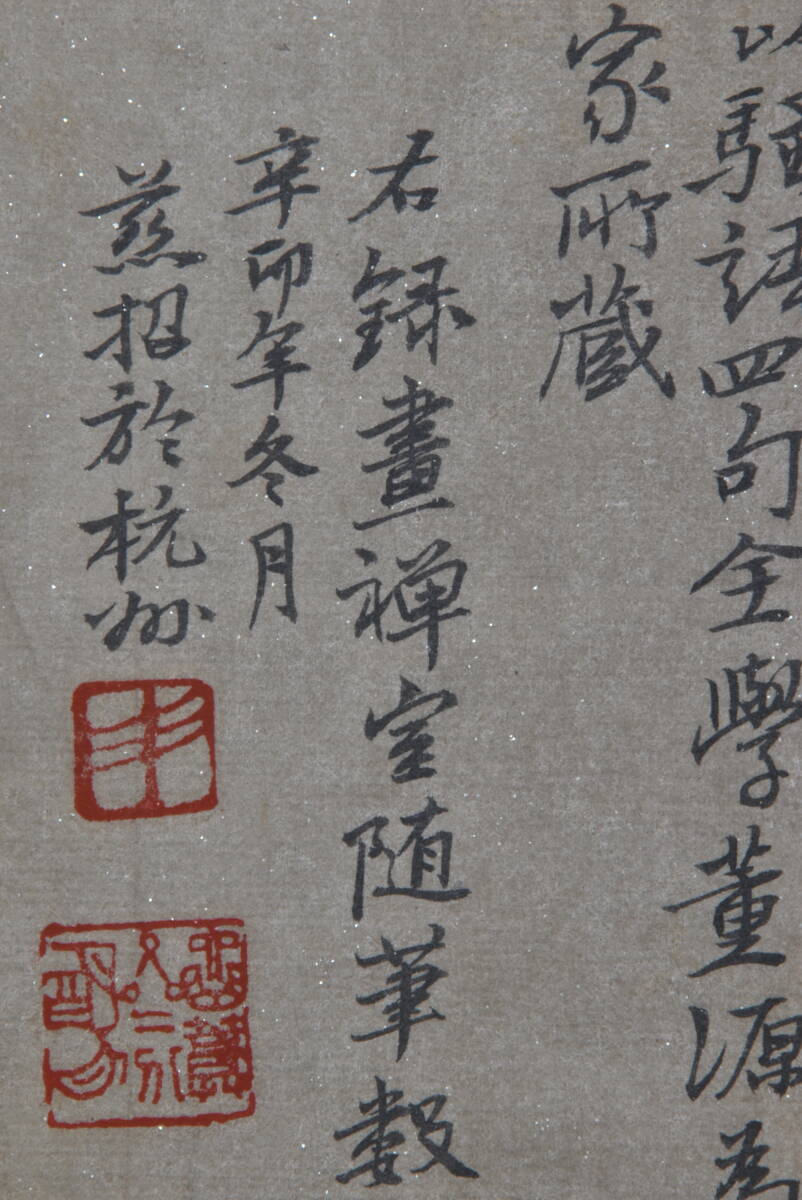 以騷語四句全學董源為
家所藏
右録畫禅室随筆数
辛卯年冬月
慈招於杭州